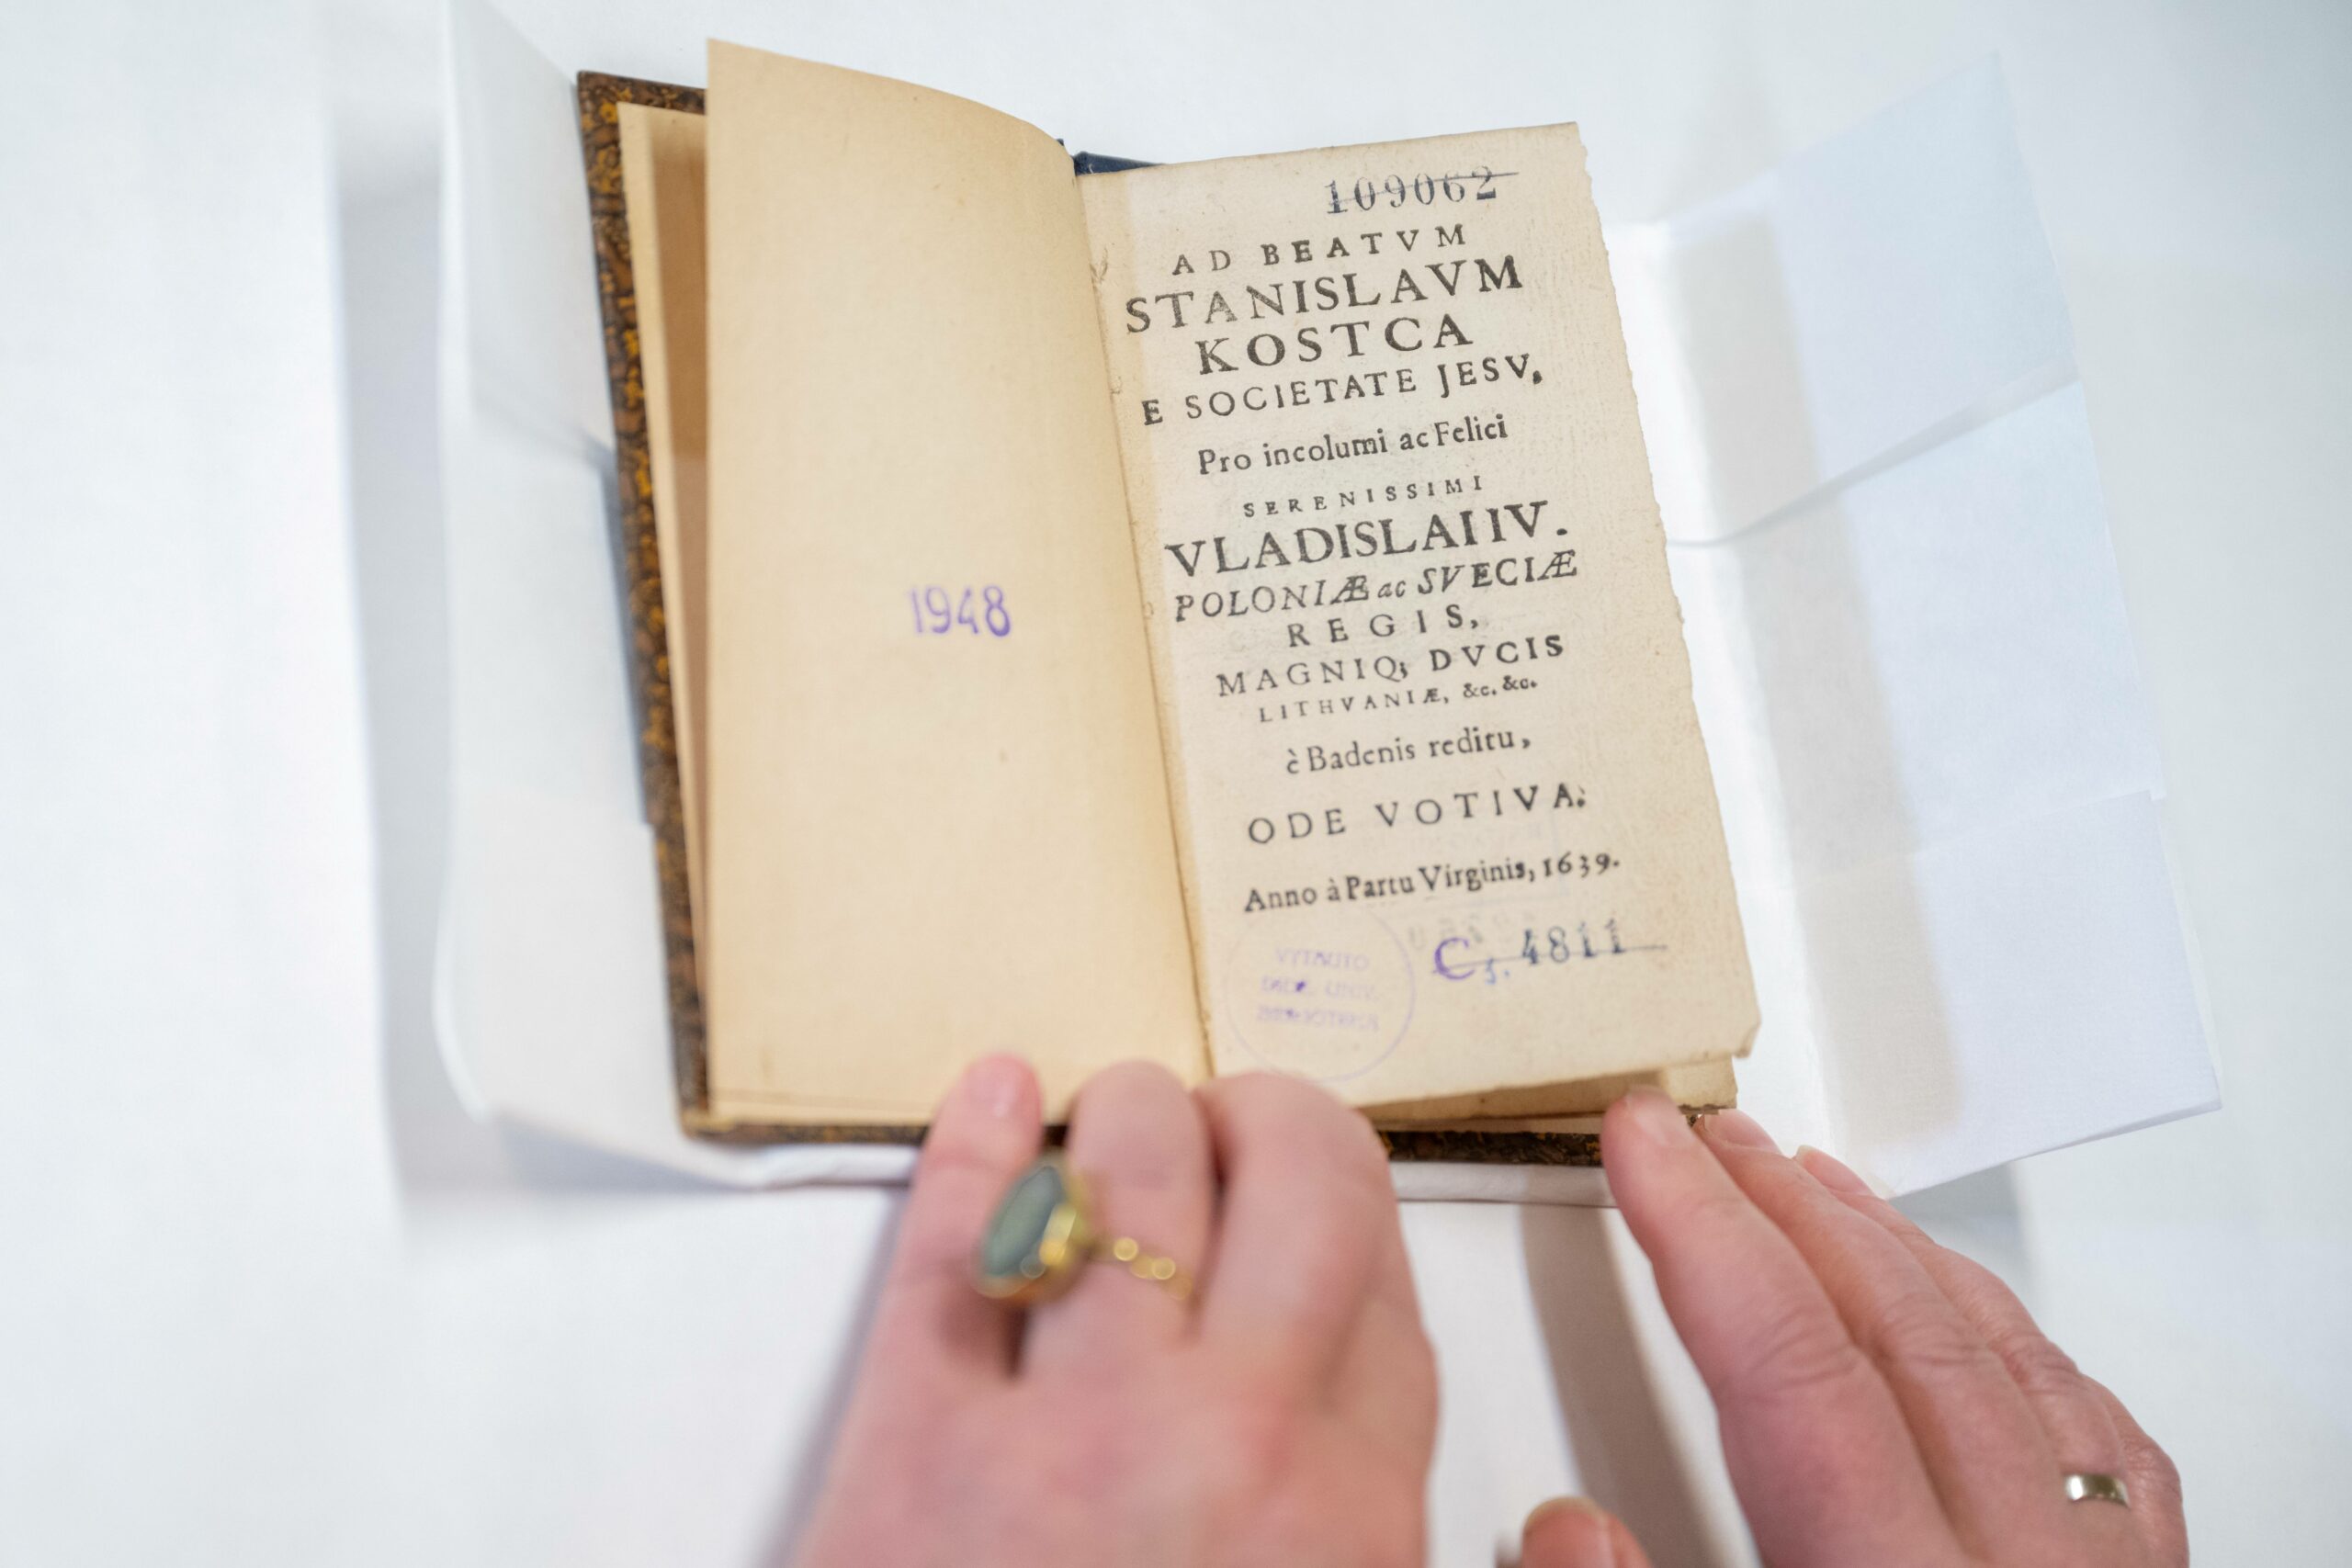 1948
109062
AD BEATVM
STANISLAVM
KOSTCA
E SOCIETATE JESV,
Pro incolumi ac Felici
SERENISSIMI
VLADISLAI IV.
POLONIÆ ac SVECIÆ
REGIS,
MAGNIQ; DVCIS
LITHVANIÆ, &c. &c.
è Badenis reditu,
ODE VOTIVA.
Anno à Partu Virginis, 1639.
C 4811
VYTAUTO
UNIV.